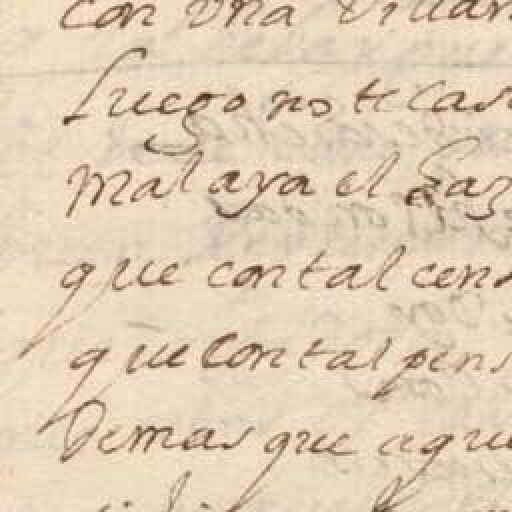 con vna villan
Luego no te cas
mal aya el Gaz
que con tal cen
que con tal pens
Demas que aque